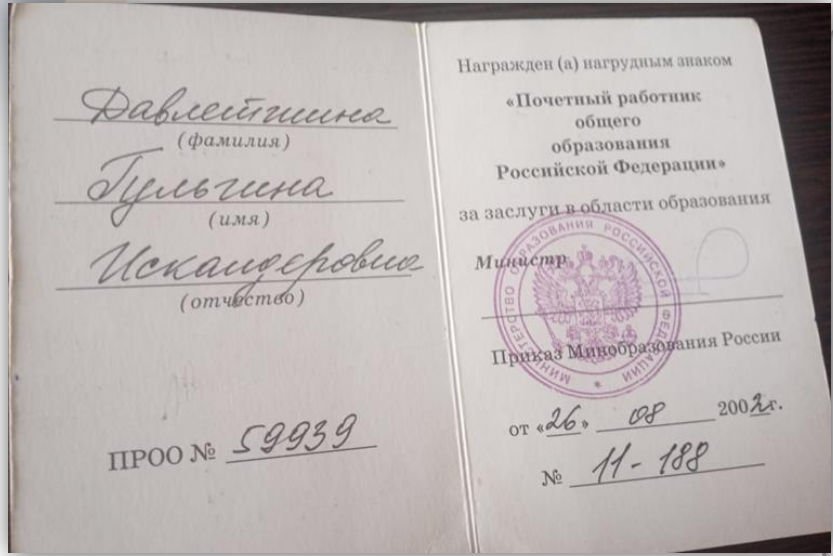 Давлетшина
(фамилия)
Гульгина
(имя)
Искандеровна
(отчество)
ПРОО № 59939
Награжден (а) нагрудным знаком
«Почетный работник
общего
образования
Российской Федерации»
за заслуги в области образования
Министр
МИНИСТЕРСТВО ОБРАЗОВАНИЯ РОССИЙСКОЙ ФЕДЕРАЦИИ
Приказ Минобразования России
от «26» 08 2002г.
№ 11-188